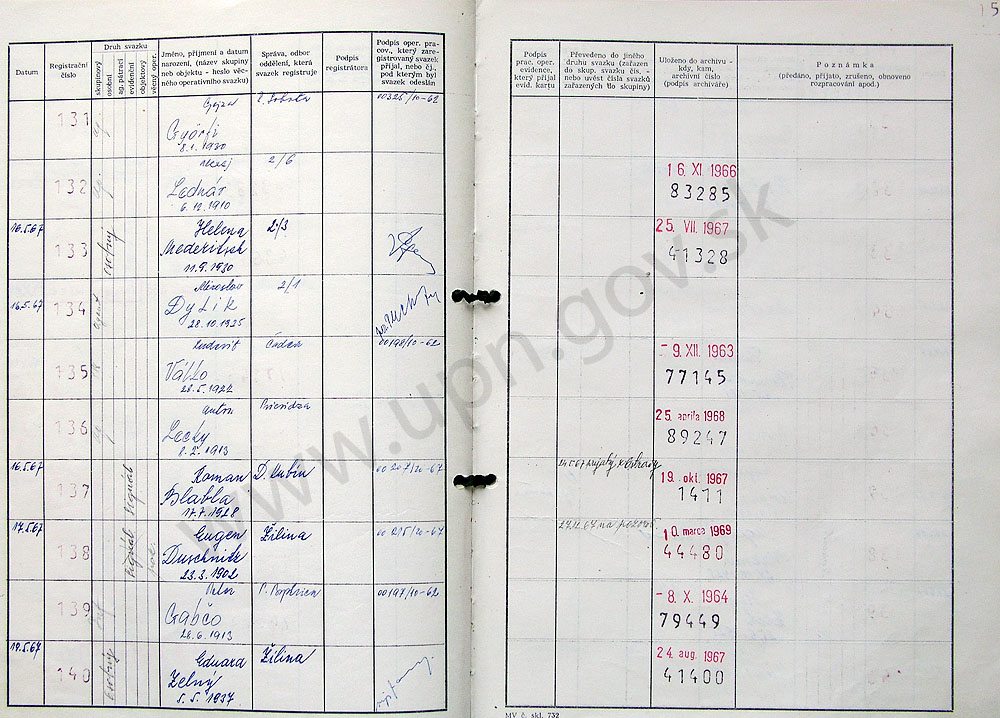 15
Datum
Registrační číslo
Druh svazku
skupinový
osobní
ag. pátrací
evidenční
objektový
věcný oper.
Jméno, příjmení a datum
narození, (název skupiny
neb objektu - heslo věc-
ného operativního svazku)
Správa, odbor
oddělení, která
svazek registruje
Podpis
registrátora
Podpis oper. prac-
cov., který zare-
gistrovaný svazek
přijal, nebo čj.,
pod kterým byl
svazek odeslán
Podpis
prac. oper.
evidence,
který přijal
evid. kartu
Převedeno do jiného
druhu svazku (zařazen
do skup. svazku čís. -
nebo uvést čísla svazků
zařazených do skupiny)
Uloženo do archivu -
kdy, kam,
archivní číslo
(podpis archiváře)
Poznámka
(předáno, přijato, zrušeno, obnoveno
rozpracování apod.)
131 Gejza 00326/10-62
Györfi
8.1.1930
132 2/6 16. XI. 1966
Lednár 83285
6.12.1910
16.5.67 133 osobný Helena 2/3 25. VII. 1967
41328
11.9.1930
16.5.67 134 agent Miroslav 2/1
Dylik
28.10.1925
135 Ludovit Čadca 00198/10-62 -9. XII. 1963
Valko 77145
28.5.1922
136 Anton Prievidza 25. apríla 1968
Lecky 89247
8.2.1913
16.5.67 137 signál Roman D. Kubín 00207/20-67 19. okt. 1967
Blabla 1411
17.7.1928
17.5.67 138 signál Eugen Žilina 00215/20-67 10. marca 1969
Duschnitz 44480
23.3.1902
139 00197/10-62 -8. X. 1964
Gabčo 79449
28.6.1913
19.5.67 140 osobný Eduard Žilina 24. aug. 1967
Zelný 41400
5.5.1937
MV č. skl. 732
www.upn.gov.sk